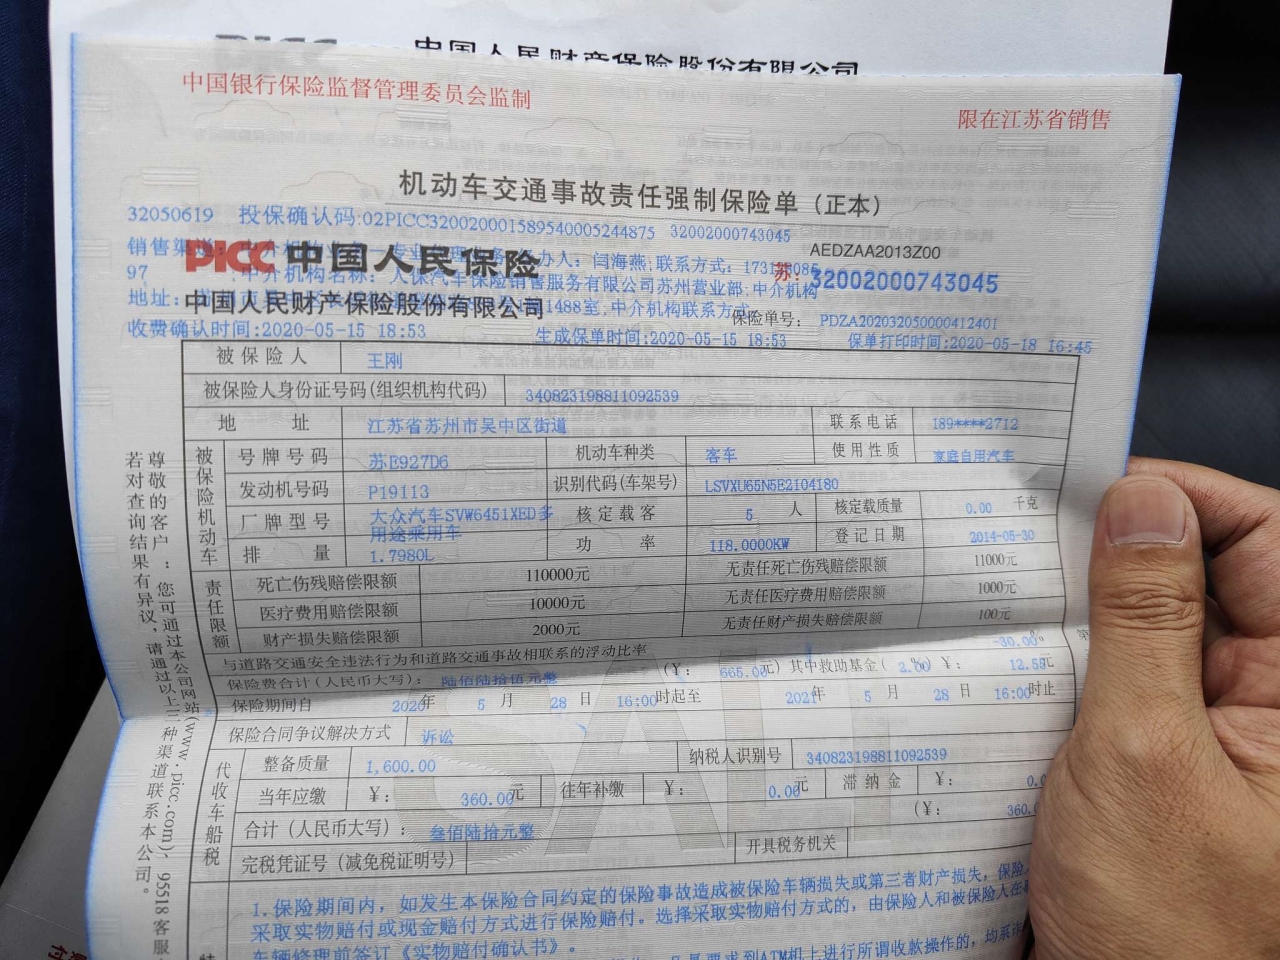 中国人民财产保险股份有限公司
中国银行保险监督管理委员会监制
限在江苏省销售
机动车交通事故责任强制保险单（正本）
32050619 投保确认码:02PICC320020001589540005244875 32002000743045
AEDZAA2013Z00
联系方式:
97
中介机构名称: 人保汽车保险销售服务有限公司苏州营业部,中介机构
PICC 中国人民保险
苏: 32002000743045
地址:
1488室,中介机构联系方式
中国人民财产保险股份有限公司
保险单号: PDZA202032050000412401
收费确认时间:2020-05-15 18:53 生成保单时间:2020-05-15 18:53 保单打印时间:2020-05-18 16:45
被保险人 王刚
被保险人身份证号码(组织机构代码) 340823198811092539
地址 江苏省苏州市吴中区街道 联系电话 189****2712
被保险机动车
号牌号码 苏E927D6 机动车种类 客车 使用性质 家庭自用汽车
发动机号码 P19113 识别代码(车架号) LSVXU65N5E2104180
厂牌型号 大众汽车SVW6451XED多用途乘用车 核定载客 5 人 核定载质量 0.00 千克
排量 1.7980L 功率 118.0000KW 登记日期 2014-05-30
责任限额
死亡伤残赔偿限额 110000元 无责任死亡伤残赔偿限额 11000元
医疗费用赔偿限额 10000元 无责任医疗费用赔偿限额 1000元
财产损失赔偿限额 2000元 无责任财产损失赔偿限额 100元
与道路交通安全违法行为和道路交通事故相联系的浮动比率 -30.00%
保险费合计(人民币大写): 陆佰陆拾伍元整 (¥: 665.00元) 其中救助基金( 2.00%) ¥: 12.55元
保险期间自 2020年 5 月 28 日 16:00时起至 2021年 5 月 28 日 16:00时止
保险合同争议解决方式 诉讼
代收车船税
整备质量 1,600.00 纳税人识别号 340823198811092539
当年应缴 ¥: 360.00元 往年补缴 ¥: 0.00元 滞纳金 ¥: 0.0
合计(人民币大写): 叁佰陆拾元整 (¥: 360.
完税凭证号(减免税证明号) 开具税务机关
1.保险期间内，如发生本保险合同约定的保险事故造成被保险车辆损失或第三者财产损失，保险
采取实物赔付或现金赔付方式进行保险赔付。选择采取实物赔付方式的，由保险人和被保险人在
车辆修理前签订《实物赔付确认书》。
要求到ATM机上进行所谓收款操作的，均系
尊敬的客户：您可通过本公司网站(www.picc.com)、95518客服
若对查询结果有异议，请通过以上三种渠道联系本公司。